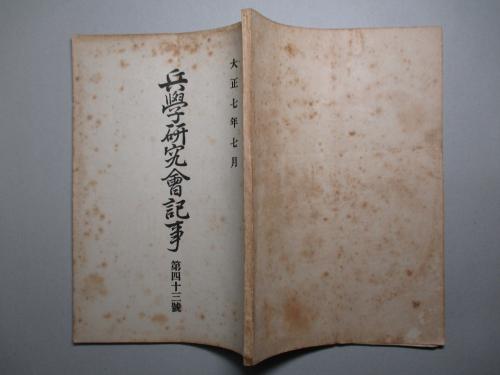 大正七年七月
兵學研究會記事
第四十三號